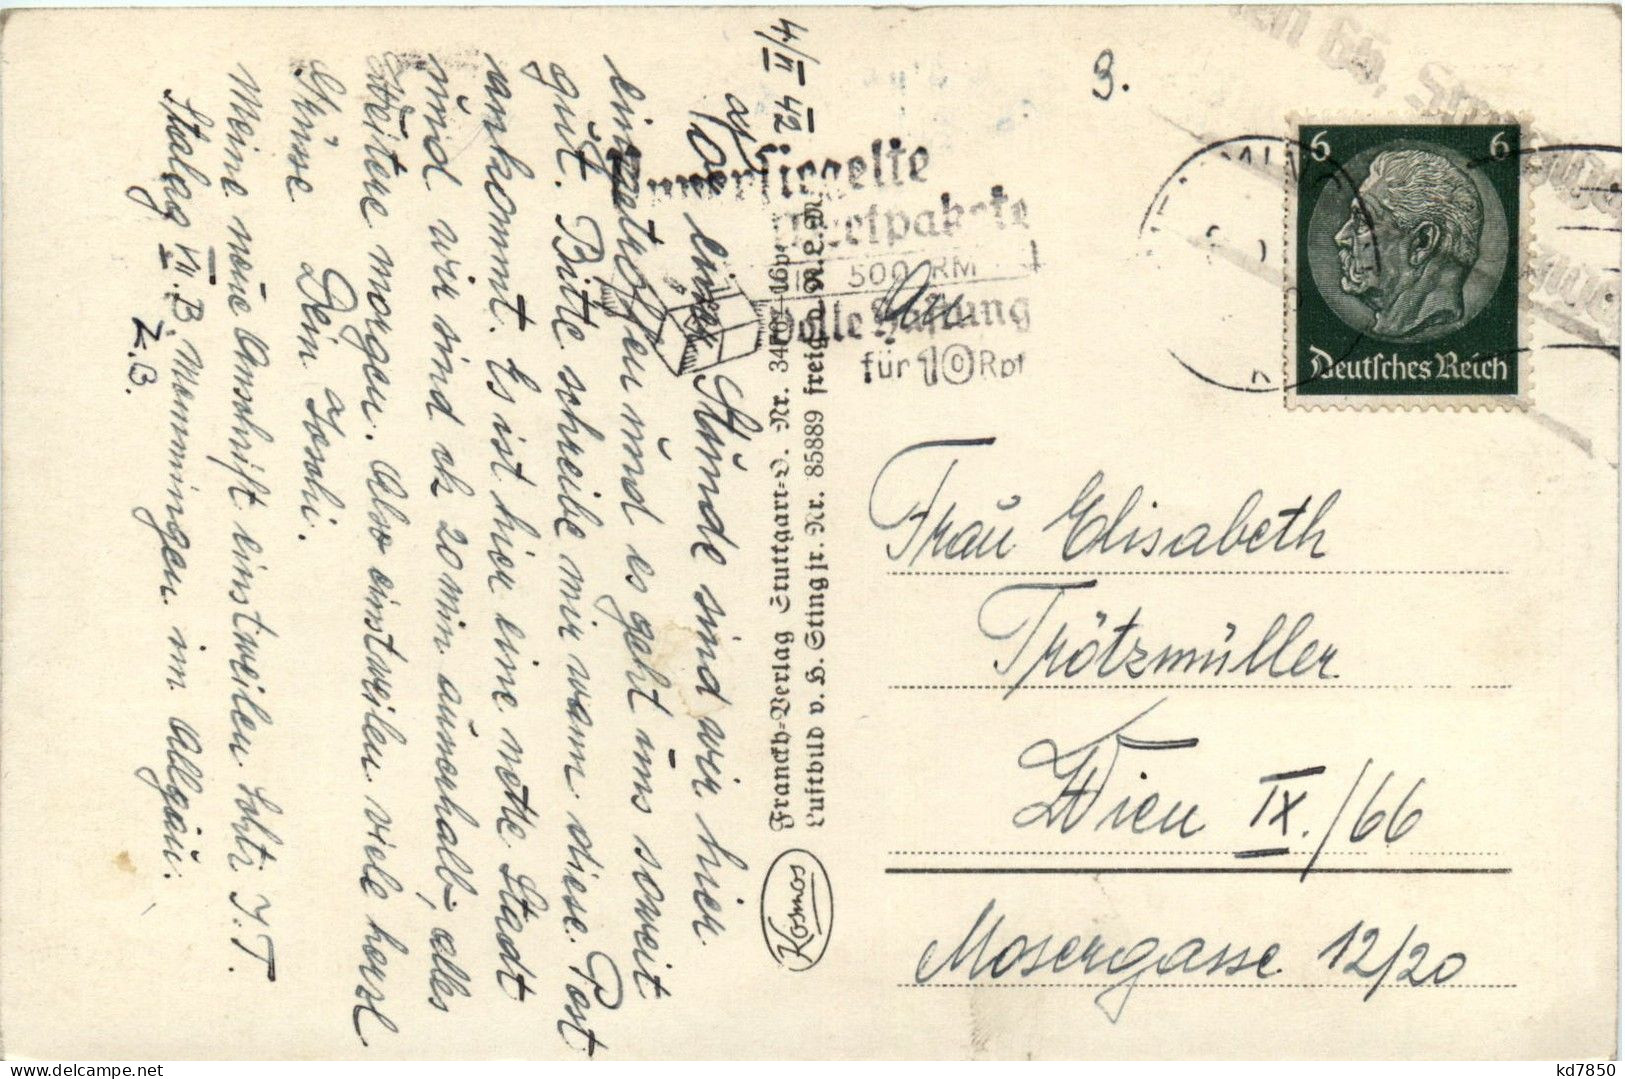 4./II 42
Vor einer Stunde sind wir hier
eingetroffen und es geht uns soweit
gut. Bitte schreibe mir wann diese Post
ankommt. Es ist hier eine nette Stadt
und wir sind ch 20 min ausserhalb, alles
Weitere morgen. Also einstweilen viele herzl
Grüsse Dein Joschi.
Meine neue Anschrift einstweilen Sold. J. T.
Stalag VII. B Memmingen im Allgäu.
Z. B.
Franckh-Verlag Stuttgart-O. Nr. 3450
Luftbild v. H. Sting jr. Nr. 85889 freig. d. R.L.M.
Kosmos
Unversiegelte
Wertpakete
500 RM
Volle Haftung
für 10 Rpf
3.
6 6
Deutsches Reich
An
Frau Elisabeth
Trötzmüller
Wien IX./66
Mosergasse 12/20
kd7850